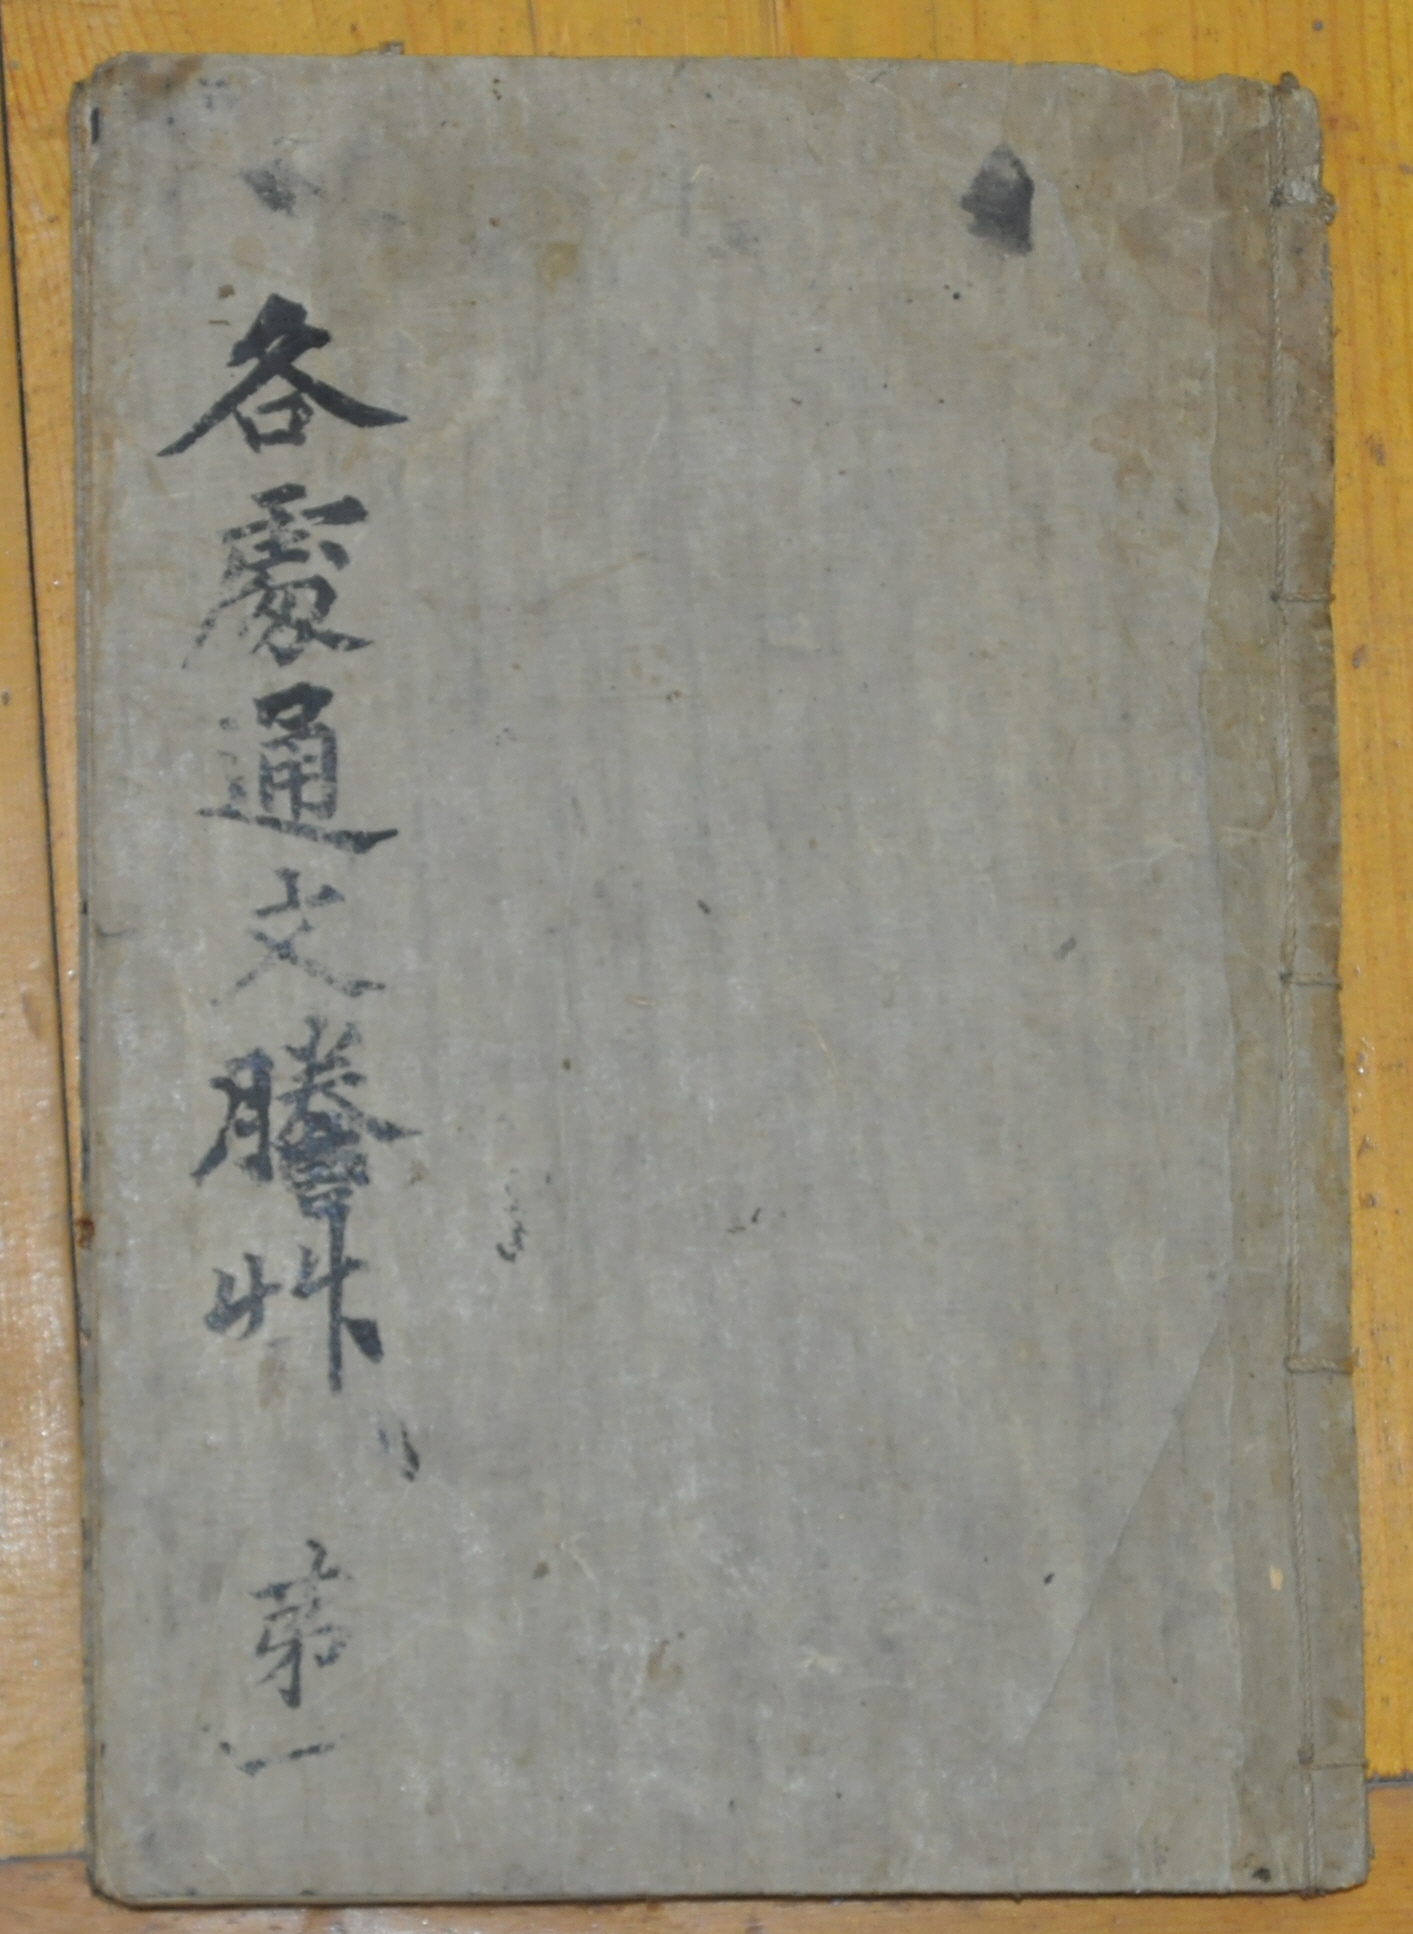 各處通文謄艸 第一